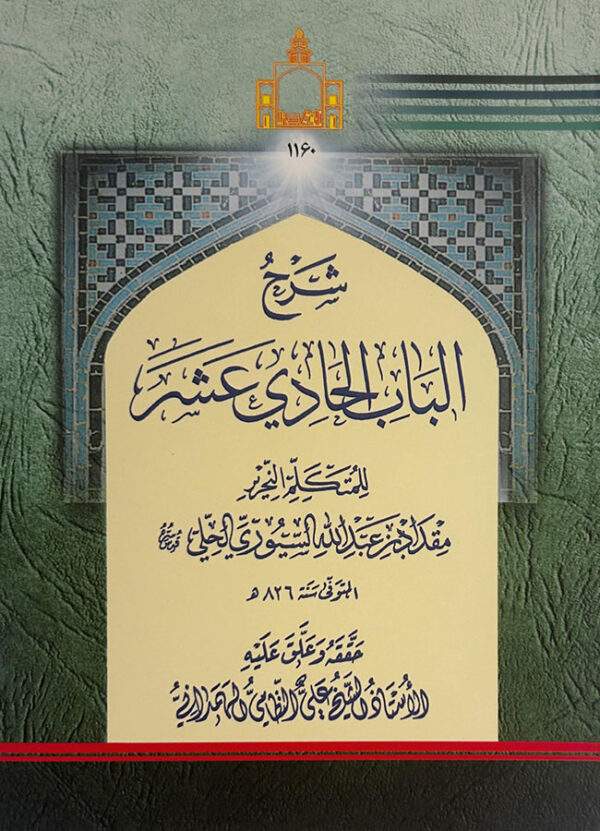 ١١٦٠
شَرْحُ
البَابِ الحَادِي عَشَرَ
لِلمُتَكَلِّمِ النِّحْرِيرِ
مِقْدَادِ بْنِ عَبْدِ اللّٰهِ السُّيُورِيِّ الحِلِّيِّ
المتوفّى سَنَة ٨٢٦ هـ
حَقَّقَهُ وَعَلَّقَ عَلَيْهِ
الأُسْتَاذُ الشَّيْخُ عَلِيٌّ النِّظَامِيُّ الهَمَدَانِيُّ